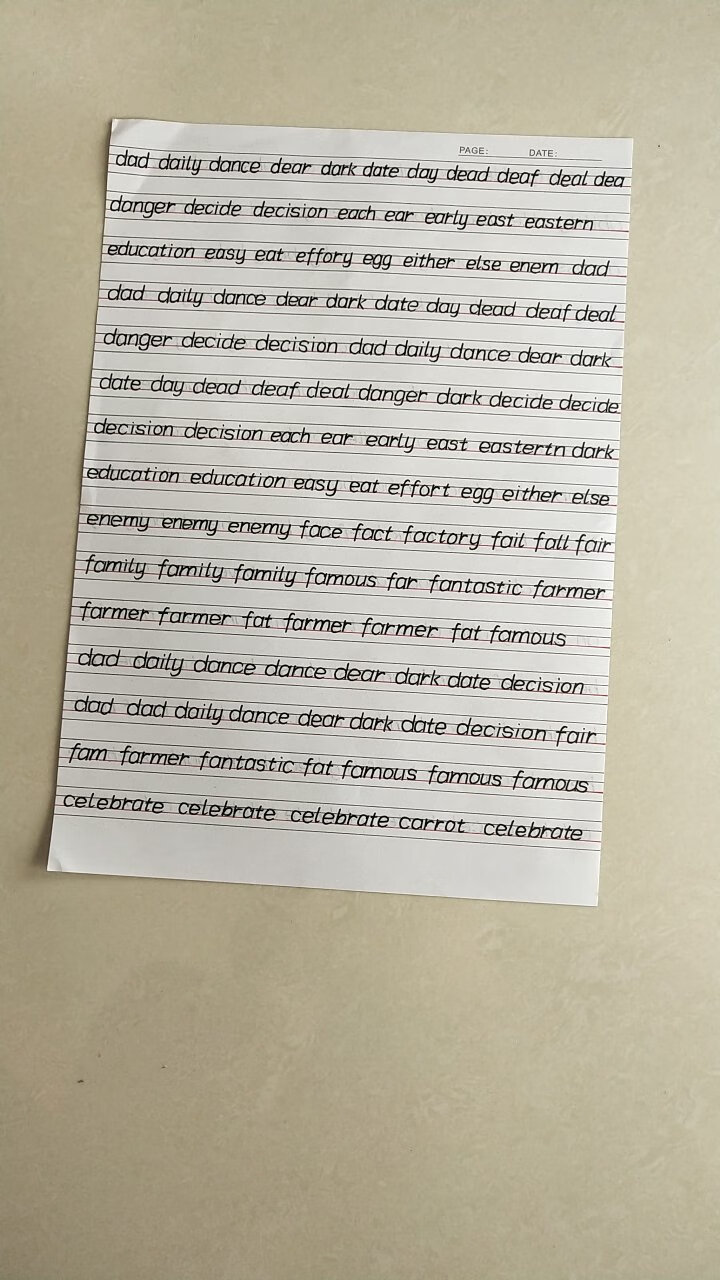 PAGE: DATE:
dad daily dance dear dark date day dead deaf deal dea
danger decide decision each ear early east eastern
education easy eat effory egg either else enem dad
dad daily dance dear dark date day dead deaf deal
danger decide decision dad daily dance dear dark
date day dead deaf deal danger dark decide decide
decision decision each ear early east eastertn dark
education education easy eat effort egg either else
enemy enemy enemy face fact factory fail fall fair
family family family famous far fantastic farmer
farmer farmer fat farmer farmer fat famous
dad daily dance dance dear dark date decision
dad dad daily dance dear dark date decision fair
fam farmer fantastic fat famous famous famous
celebrate celebrate celebrate carrot celebrate